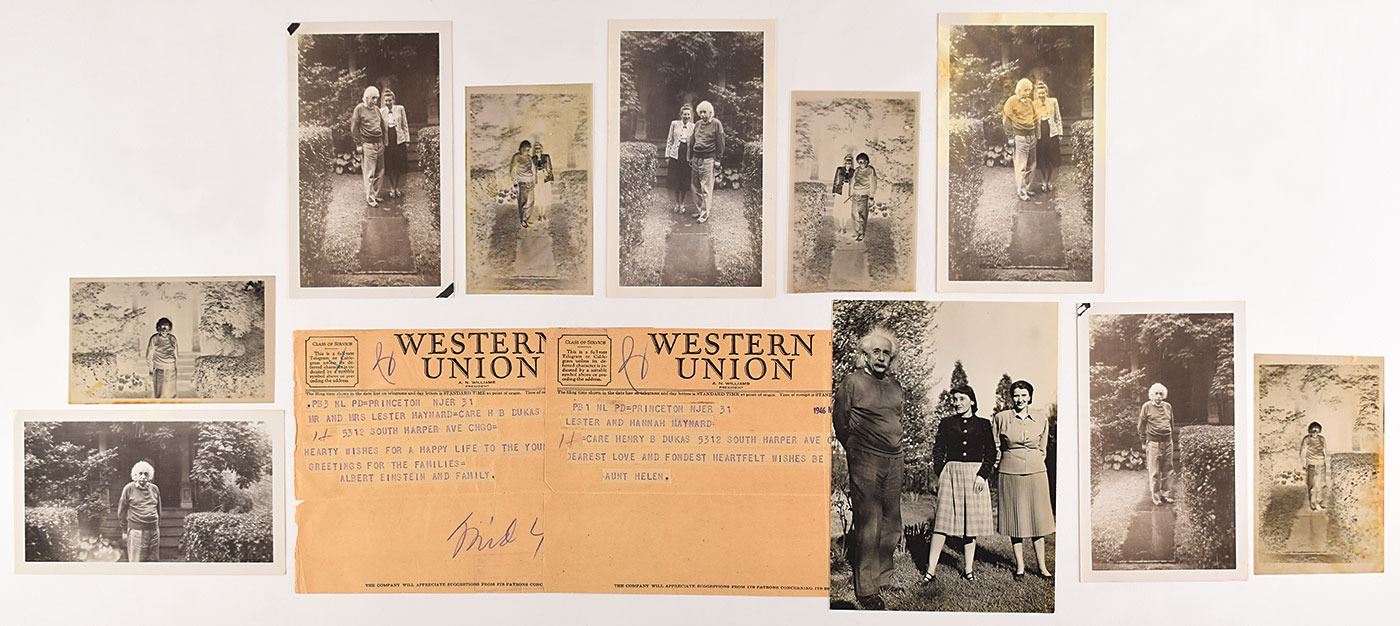 CLASS OF SERVICE
This is a full-rate
Telegram or Cable-
gram unless its de-
ferred character is in-
dicated by a suitable
symbol above or pre-
ceding the address.
WESTERN
UNION
A. N. WILLIAMS
PRESIDENT
The filing time shown in the date line on telegrams and day letters is STANDARD TIME at point of origin.
.PB3 NL PD=PRINCETON NJER 31
MR AND MRS LESTER MAYNARD=CARE H B DUKAS
5312 SOUTH HARPER AVE CHGO=
HEARTY WISHES FOR A HAPPY LIFE TO THE YOUN
GREETINGS FOR THE FAMILIES=
ALBERT EINSTEIN AND FAMILY.
THE COMPANY WILL APPRECIATE SUGGESTIONS FROM ITS PATRONS CONC
CLASS OF SERVICE
This is a full-rate
Telegram or Cable-
gram unless its de-
ferred character is in-
dicated by a suitable
symbol above or pre-
ceding the address.
WESTERN
UNION
A. N. WILLIAMS
PRESIDENT
The filing time shown in the date line on telegrams and day letters is STANDARD TIME at point of origin. Time of receipt is STANDA
PB1 NL PD=PRINCETON NJER 31 1946
LESTER AND HANNAH MAYNARD=
=CARE HENRY B DUKAS 5312 SOUTH HARPER AVE C
DEAREST LOVE AND FONDEST HEARTFELT WISHES BE
AUNT HELEN.
THE COMPANY WILL APPRECIATE SUGGESTIONS FROM ITS PATRONS CONCERNING ITS